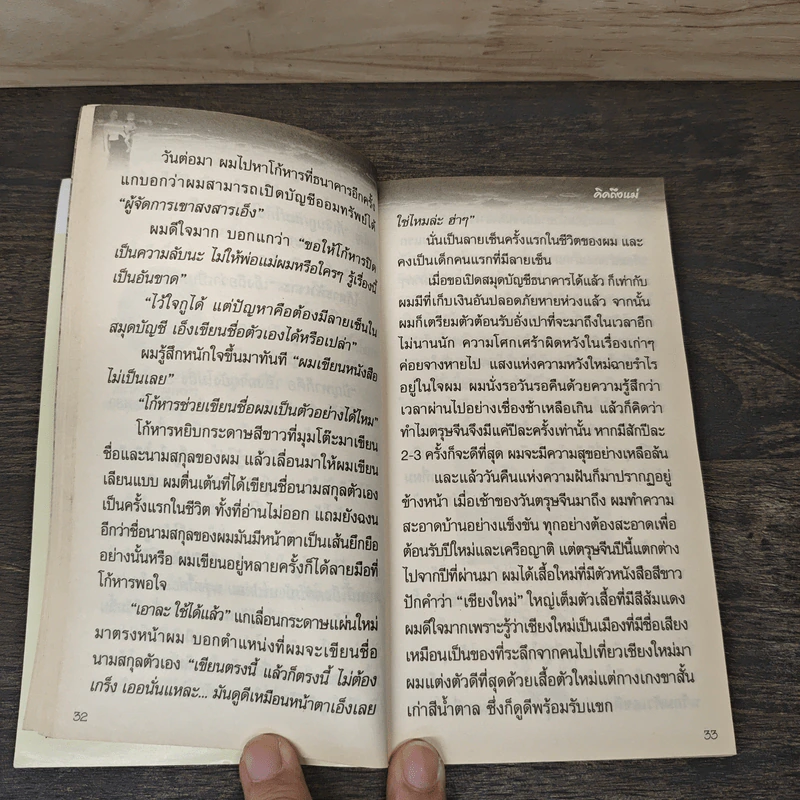 วันต่อมา ผมไปหาโก้หารที่ธนาคารอีกครั้ง
แกบอกว่าผมสามารถเปิดบัญชีออมทรัพย์ได้
“ผู้จัดการเขาสงสารเอ็ง”
ผมดีใจมาก บอกแกว่า “ขอให้โก้หารปิด
เป็นความลับนะ ไม่ให้พ่อแม่ผมหรือใครๆ รู้เรื่องนี้
เป็นอันขาด”
“ไว้ใจกูได้ แต่ปัญหาคือต้องมีลายเซ็นใน
สมุดบัญชี เอ็งเขียนชื่อตัวเองได้หรือเปล่า”
ผมรู้สึกหนักใจขึ้นมาทันที “ผมเขียนหนังสือ
ไม่เป็นเลย”
“โก้หารช่วยเขียนชื่อผมเป็นตัวอย่างได้ไหม”
โก้หารหยิบกระดาษสีขาวที่มุมโต๊ะมาเขียน
ชื่อและนามสกุลของผม แล้วเลื่อนมาให้ผมเขียน
เลียนแบบ ผมตื่นเต้นที่ได้เขียนชื่อนามสกุลตัวเอง
เป็นครั้งแรกในชีวิต ทั้งที่อ่านไม่ออก แถมยังฉงน
อีกว่าชื่อนามสกุลของผมมันมีหน้าตาเป็นเส้นยึกยือ
อย่างนั้นหรือ ผมเขียนอยู่หลายครั้งก็ได้ลายมือที่
โก้หารพอใจ
“เอาละ ใช้ได้แล้ว” แกเลื่อนกระดาษแผ่นใหม่
มาตรงหน้าผม บอกตำแหน่งที่ผมจะเขียนชื่อ
นามสกุลตัวเอง “เขียนตรงนี้ แล้วก็ตรงนี้ ไม่ต้อง
เกร็ง เออนั่นแหละ... มันดูดีเหมือนหน้าตาเอ็งเลย
32
คิดถึงแม่
ใช่ไหมล่ะ ฮ่าๆ”
นั่นเป็นลายเซ็นครั้งแรกในชีวิตของผม และ
คงเป็นเด็กคนแรกที่มีลายเซ็น
เมื่อขอเปิดสมุดบัญชีธนาคารได้แล้ว ก็เท่ากับ
ผมมีที่เก็บเงินอันปลอดภัยหายห่วงแล้ว จากนั้น
ผมก็เตรียมตัวต้อนรับอั่งเปาที่จะมาถึงในเวลาอีก
ไม่นานนัก ความโศกเศร้าผิดหวังในเรื่องเก่าๆ
ค่อยจางหายไป แสงแห่งความหวังใหม่ฉายรำไร
อยู่ในใจผม ผมนั่งรอวันรอคืนด้วยความรู้สึกว่า
เวลาผ่านไปอย่างเชื่องช้าเหลือเกิน แล้วก็คิดว่า
ทำไมตรุษจีนจึงมีแค่ปีละครั้งเท่านั้น หากมีสักปีละ
2-3 ครั้งก็จะดีที่สุด ผมจะมีความสุขอย่างเหลือล้น
และแล้ววันคืนแห่งความฝันก็มาปรากฏอยู่
ข้างหน้า เมื่อเช้าของวันตรุษจีนมาถึง ผมทำความ
สะอาดบ้านอย่างแข็งขัน ทุกอย่างต้องสะอาดเพื่อ
ต้อนรับปีใหม่และเครือญาติ แต่ตรุษจีนปีนี้แตกต่าง
ไปจากปีที่ผ่านมา ผมได้เสื้อใหม่ที่มีตัวหนังสือสีขาว
ปักคำว่า “เชียงใหม่” ใหญ่เต็มตัวเสื้อที่มีสีส้มแดง
ผมดีใจมากเพราะรู้ว่าเชียงใหม่เป็นเมืองที่มีชื่อเสียง
เหมือนเป็นของที่ระลึกจากคนไปเที่ยวเชียงใหม่มา
ผมแต่งตัวดีที่สุดด้วยเสื้อตัวใหม่แต่กางเกงขาสั้น
เก่าสีน้ำตาล ซึ่งก็ดูดีพร้อมรับแขก
33